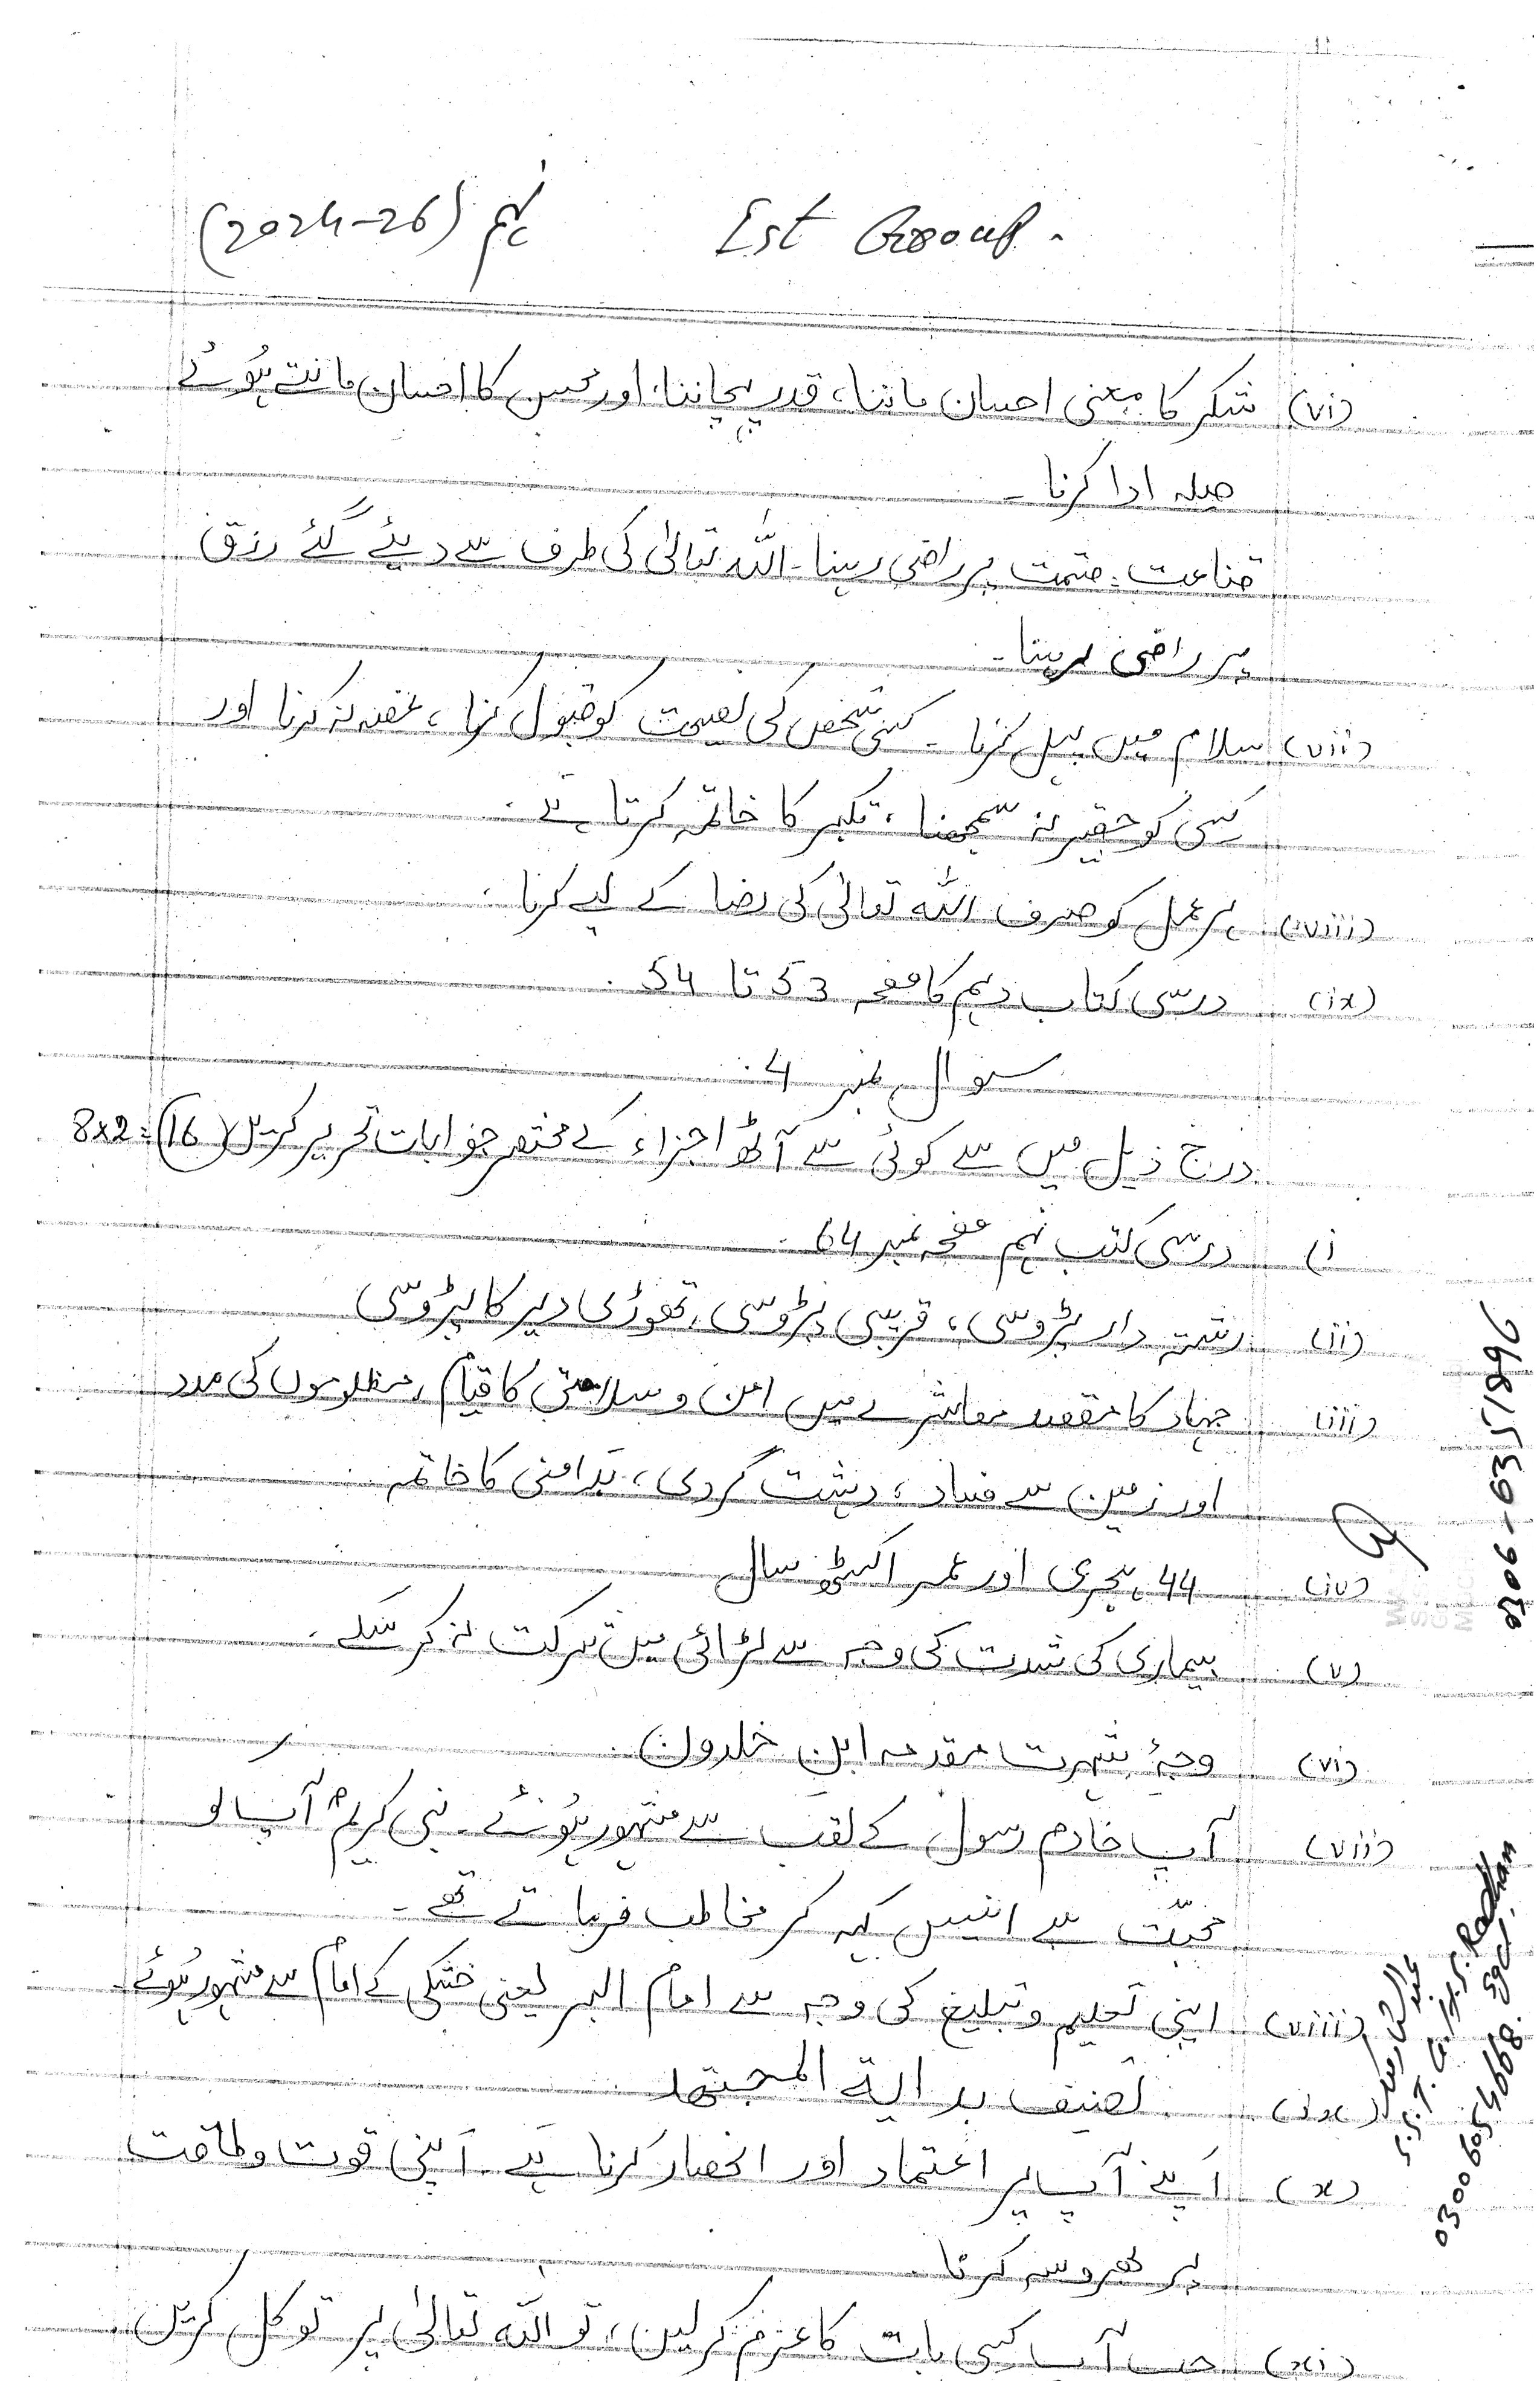 Ist Group.
نہم (2024-26)
(vi) شکر کا معنی احسان ماننا، قدر پہچاننا، اور محسن کا احسان مانتے ہوئے
صلہ ادا کرنا۔
قناعت: قسمت پر راضی رہنا۔ اللہ تعالیٰ کی طرف سے دیئے گئے رزق
پر راضی رہنا۔
(vii) سلام میں پہل کرنا۔ کسی شخص کی نصیحت کو قبول کرنا، غصہ نہ کرنا اور
کسی کو حقیر نہ سمجھنا، تکبر کا خاتمہ کرتا ہے۔
(viii) ہر عمل کو صرف اللہ تعالیٰ کی رضا کے لیے کرنا۔
(ix) درسی کتاب دہم کا صفحہ 53 تا 54۔
سوال نمبر 4:
درج ذیل میں سے کوئی سے آٹھ اجزاء کے مختصر جوابات تحریر کریں (16) = 8x2
i) درسی کتب نہم صفحہ نمبر 64۔
(ii) رشتہ دار پڑوسی، قریبی پڑوسی، تھوڑی دیر کا پڑوسی
(iii) جہاد کا مقصد معاشرے میں امن و سلامتی کا قیام، مظلوموں کی مدد
اور زمین سے فساد، دہشت گردی، بدامنی کا خاتمہ
(iv) 44 ہجری اور عمر اکسٹھ سال
(v) بیماری کی شدت کی وجہ سے لڑائی میں شرکت نہ کر سکے۔
(vi) وجۂ شہرت مقدمہ ابن خلدون۔
(vii) آپ خادم رسول کے لقب سے مشہور ہوئے۔ نبی کریمؐ آپ کو
محبّت سے انیس کہہ کر مخاطب فرماتے تھے۔
(viii) اپنی تعلیم و تبلیغ کی وجہ سے امام البر یعنی خشکی کے امام سے مشہور ہوئے۔
(ix) تصنیف بدایۃ المجتہد
(x) اپنے آپ پر اعتماد اور انحصار کرنا ہے۔ اپنی قوت و طاقت
پر بھروسہ کرنا
(xi) جب آپ کسی بات کا عزم کرلیں، تو اللہ تعالیٰ پر توکل کریں۔
S.S.T. G.H.S. Radhan
0300 6054668